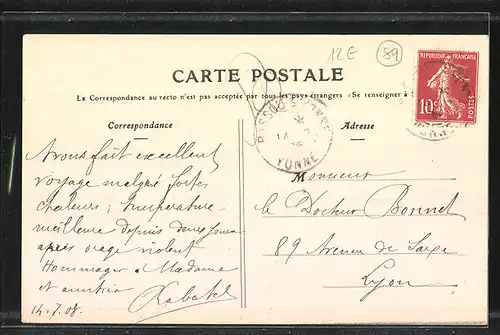 12E
89
REPUBLIQUE FRANÇAISE
10c
POSTES
CARTE POSTALE
La Correspondance au recto n'est pas acceptée par tous les pays étrangers (Se renseigner à
Correspondance
Adresse
BASSOU YONNE
Avons fait excellent
voyage malgré fortes
chaleurs; température
meilleure depuis deux jours
après orage violent
Hommages à Madame
et amitiés
Rabatel
14.7.08.
Monsieur
le Docteur Bonnet
89 Avenue de Saxe
Lyon